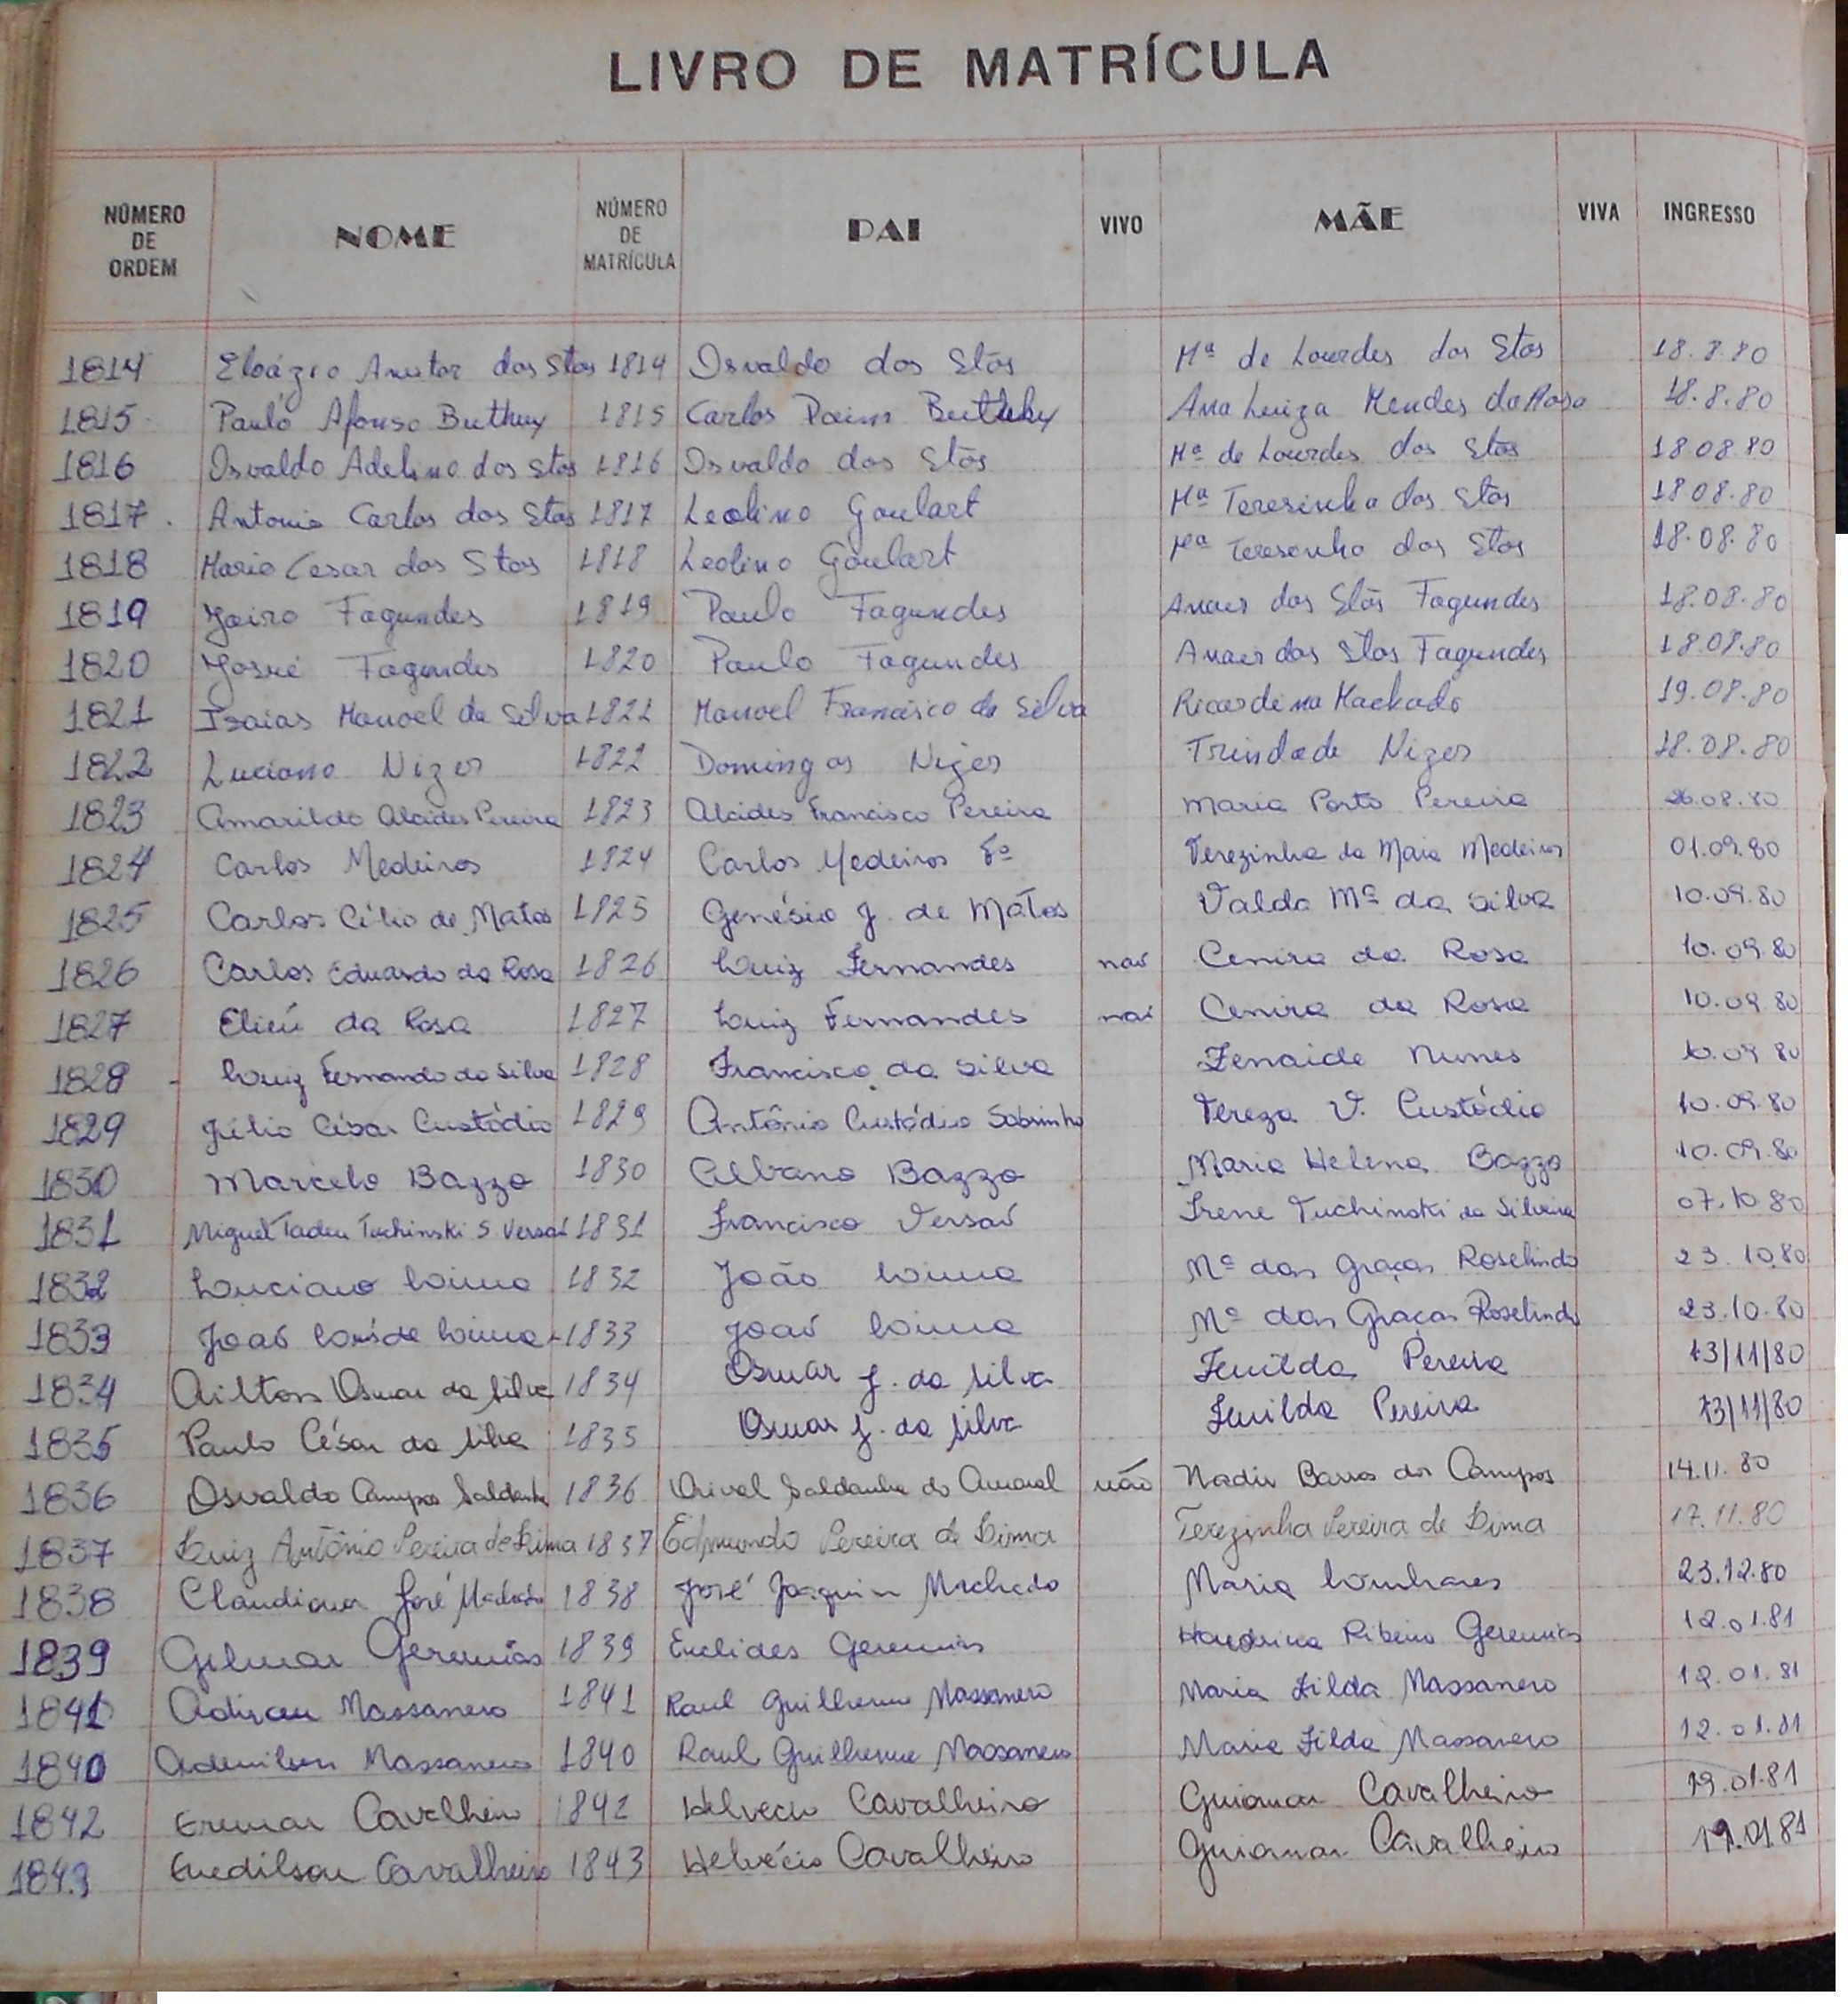 LIVRO DE MATRÍCULA
NÚMERO DE ORDEM NOME NÚMERO DE MATRÍCULA PAI VIVO MÃE VIVA INGRESSO
1814 Eloázio Amutar dos Stos 1814 Osvaldo dos Stos Mª de Lourdes dos Stos 18.8.80
1815 Paulo Afonso Buthuy 1815 Carlos Paim Ana Luiza Mendes da Rosa 18.8.80
1816 Osvaldo Adelino dos Stos 1816 Osvaldo dos Stos Mª de Lourdes dos Stos 18.08.80
1817 Antonio Carlos dos Stos 1817 Leolino Goulart Mª Teresinha dos Stos 18.08.80
1818 Mario Cesar dos Stos 1818 Leolino Goulart Mª Teresinha dos Stos 18.08.80
1819 Jairo Fagundes 1819 Paulo Fagundes Anaes dos Stos Fagundes 18.08.80
1820 Josué Fagundes 1820 Paulo Fagundes Anaes dos Stos Fagundes 18.08.80
1821 Isaias Manoel da Silva 1821 Manoel Francisco da Silva Ricardina Machado 19.08.80
1822 Luciano Nizer 1822 Domingos Nizer Trindade Nizer 18.08.80
1823 Amarildo Alcides Pereira 1823 Alcides Francisco Pereira Maria Porto Pereira 26.08.80
1824 Carlos Medeiros 1824 Carlos Medeiros Fº Terezinha da Maia Medeiros 01.09.80
1825 Carlos Célio de Matos 1825 Genésio J. de Matos Valda Mª da Silva 10.09.80
1826 Carlos Eduardo da Rosa 1826 Luiz Fernandes naõ Cenira da Rosa 10.09.80
1827 Elieú da Rosa 1827 Luiz Fernandes naõ Cenira da Rosa 10.09.80
1828 Luiz Fernando da Silva 1828 Francisco da Silva Zenaide Nunes 10.09.80
1829 Júlio César Custódio 1829 Antônio Custódio Sobrinho Tereza V. Custódio 10.09.80
1830 Marcelo Bazzo 1830 Albano Bazzo Maria Helena Bazzo 10.09.80
1831 Miguel Tadeu Tuchinski S. Versaõ 1831 Francisco Versaõ Irene Tuchinski da Silveira 07.10.80
1832 Luciano Lima 1832 João Lima Mª das Graças Roselindo 23.10.80
1833 Joaõ Luís de Lima 1833 Joaõ Lima Mª das Graças Roselindo 23.10.80
1834 Ailton Osmar da Silva 1834 Osmar J. da Silva Zenilda Pereira 13/11/80
1835 Paulo César da Silva 1835 Osmar J. da Silva Zenilda Pereira 13/11/80
1836 Osvaldo Campos Saldanha 1836 Orival Saldanha do Amaral não Nadir Barros dos Campos 14.11.80
1837 Luiz Antônio Pereira de Lima 1837 Edmundo Pereira de Lima Terezinha Pereira de Lima 17.11.80
1838 Claudiomir José Machado 1838 José Joaquim Machado Maria Linhares 23.12.80
1839 Gilmar Geremias 1839 Euclides Geremias Ribeiro Geremias 12.01.81
1841 Adirceu Massaneiro 1841 Raul Guilherme Massaneiro Maria Zilda Massaneiro 12.01.81
1840 Ademilson Massaneiro 1840 Raul Guilherme Massaneiro Maria Zilda Massaneiro 12.01.81
1842 Eremar Cavalheiro 1842 Helvecio Cavalheiro Guiomar Cavalheiro 19.01.81
1843 Enedilson Cavalheiro 1843 Helvécio Cavalheiro Guiomar Cavalheiro 19.01.81